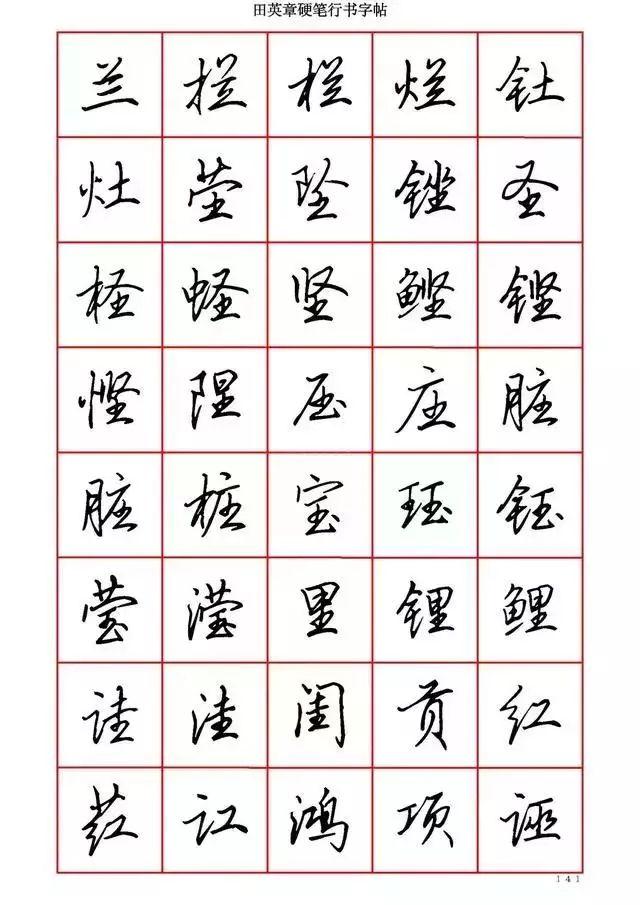 田英章硬笔行书字帖
兰拦栏烂钍
灶茔坠锉圣
柽蛏坚鲣铿
悭陧压庄脏
脏桩宝珏钰
莹滢里锂鲤
诖洼闺贡红
荭讧鸿项诬
141